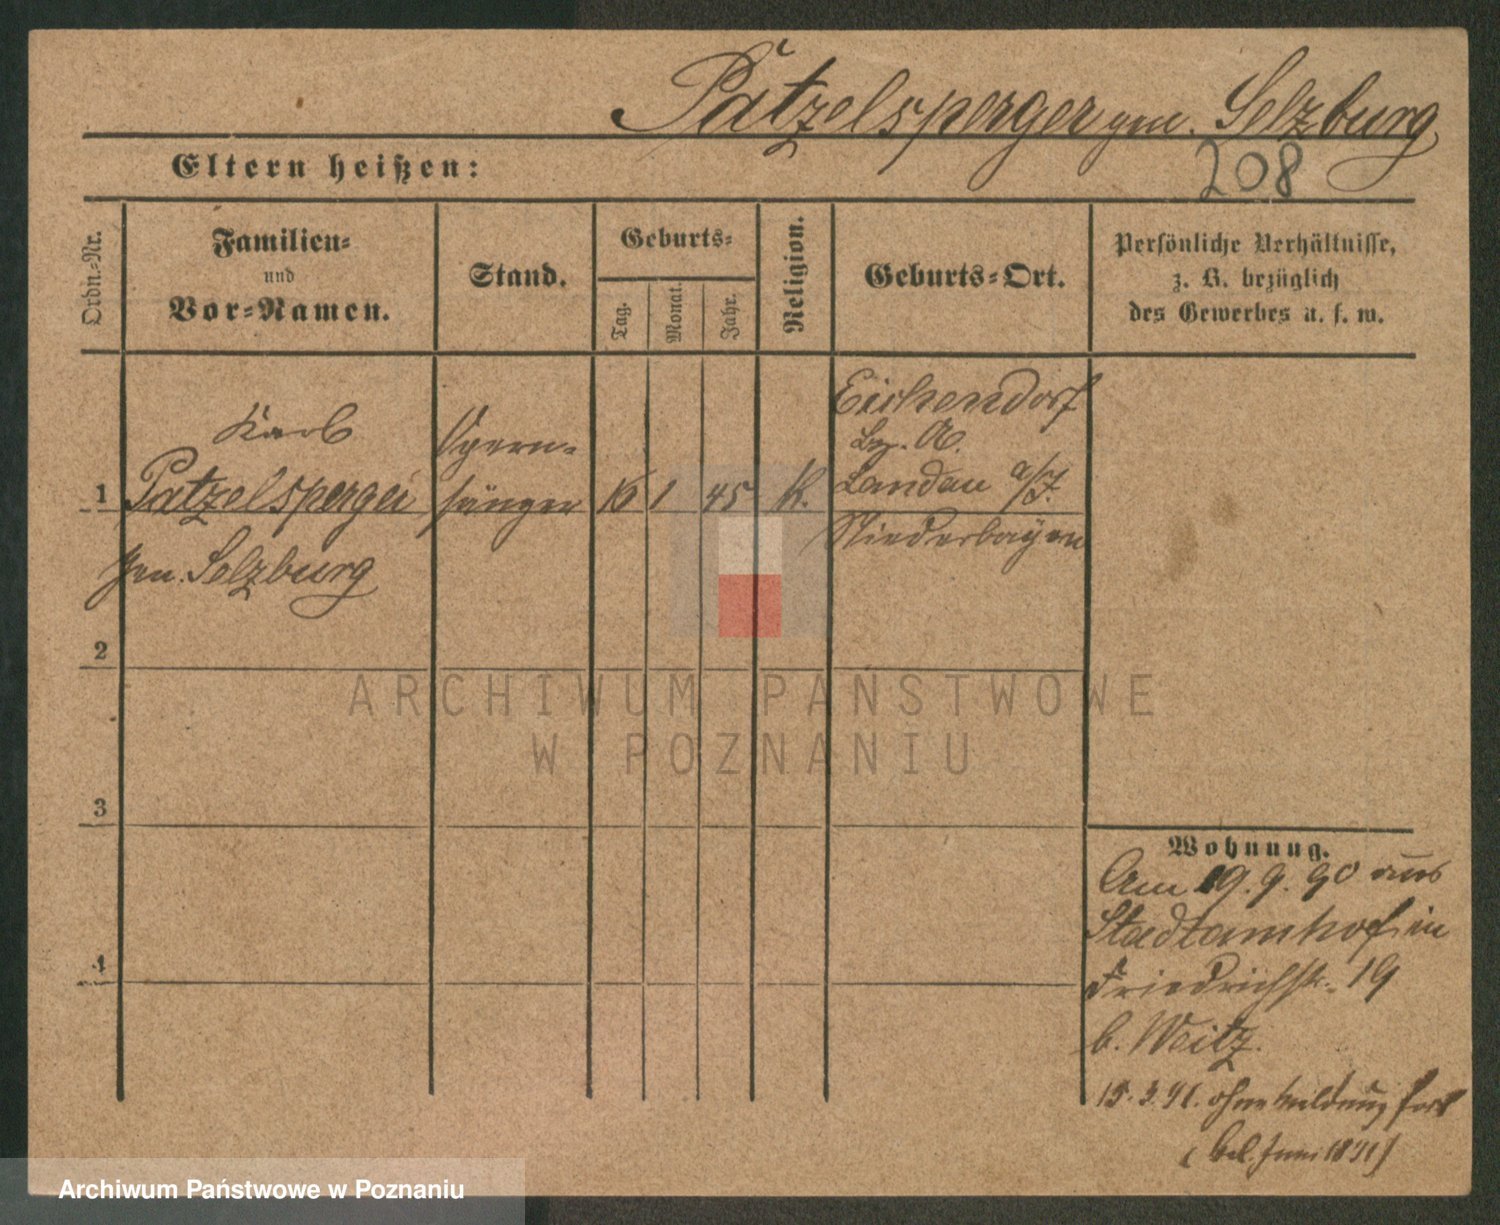 Patzelsperger gen. Selzburg
208
Eltern heißen:
Ordn.-Nr.
Familien-
und
Vor-Namen.
Stand.
Geburts-
Tag.
Monat.
Jahr.
Religion.
Geburts-Ort.
Persönliche Verhältnisse,
z. B. bezüglich
des Gewerbes u. s. w.
1
Karl
Patzelsperger
gen. Selzburg
Opern-
sänger
16 1 45 K.
Eichendorf
Bz. A.
Landau a/I.
Niederbayern
2
3
4
Wohnung.
Am 19. 9. 90 aus
Stadtamhof in
Friedrichstr. 19
b. Weitz.
15. 3. 91. ohne Meldung fort
(bel. Juni 1891)
ARCHIWUM PAŃSTWOWE
W POZNANIU
Archiwum Państwowe w Poznaniu